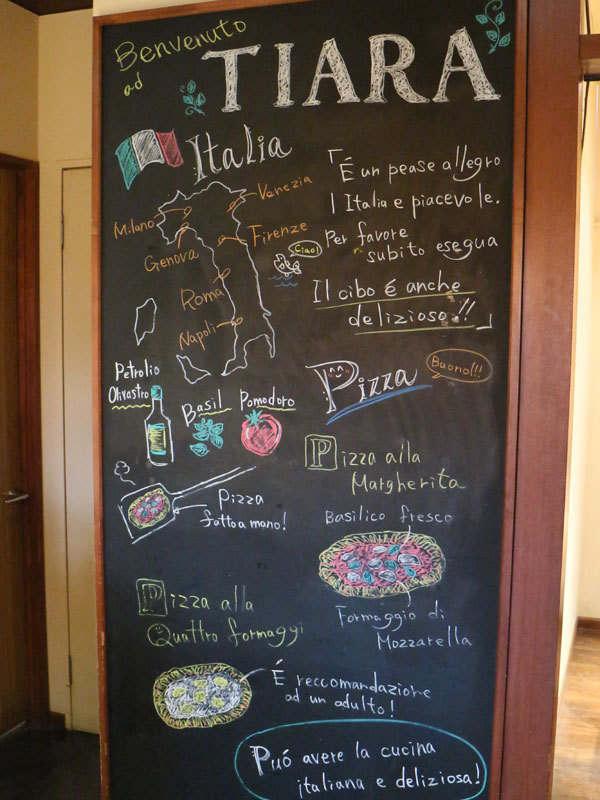 Benvenuto
ad
TIARA
Italia
Milano
Venezia
Genova
Firenze
Roma
Napoli
Ciao!
「É un pease allegro
l Italia e piacevole.
Per favore
subito esegua
Il cibo é anche
delizioso!!」
Petrolio
Olivastro
Basil
Pomodoro
Pizza
Buono!!!
Pizza
fatto a mano!
Pizza alla
Margherita
Basilico fresco
Formaggio di
Mozzarella
Pizza alla
Quattro formaggi
É reccomandazione
ad un adulto!
Puó avere la cucina
italiana e deliziosa!